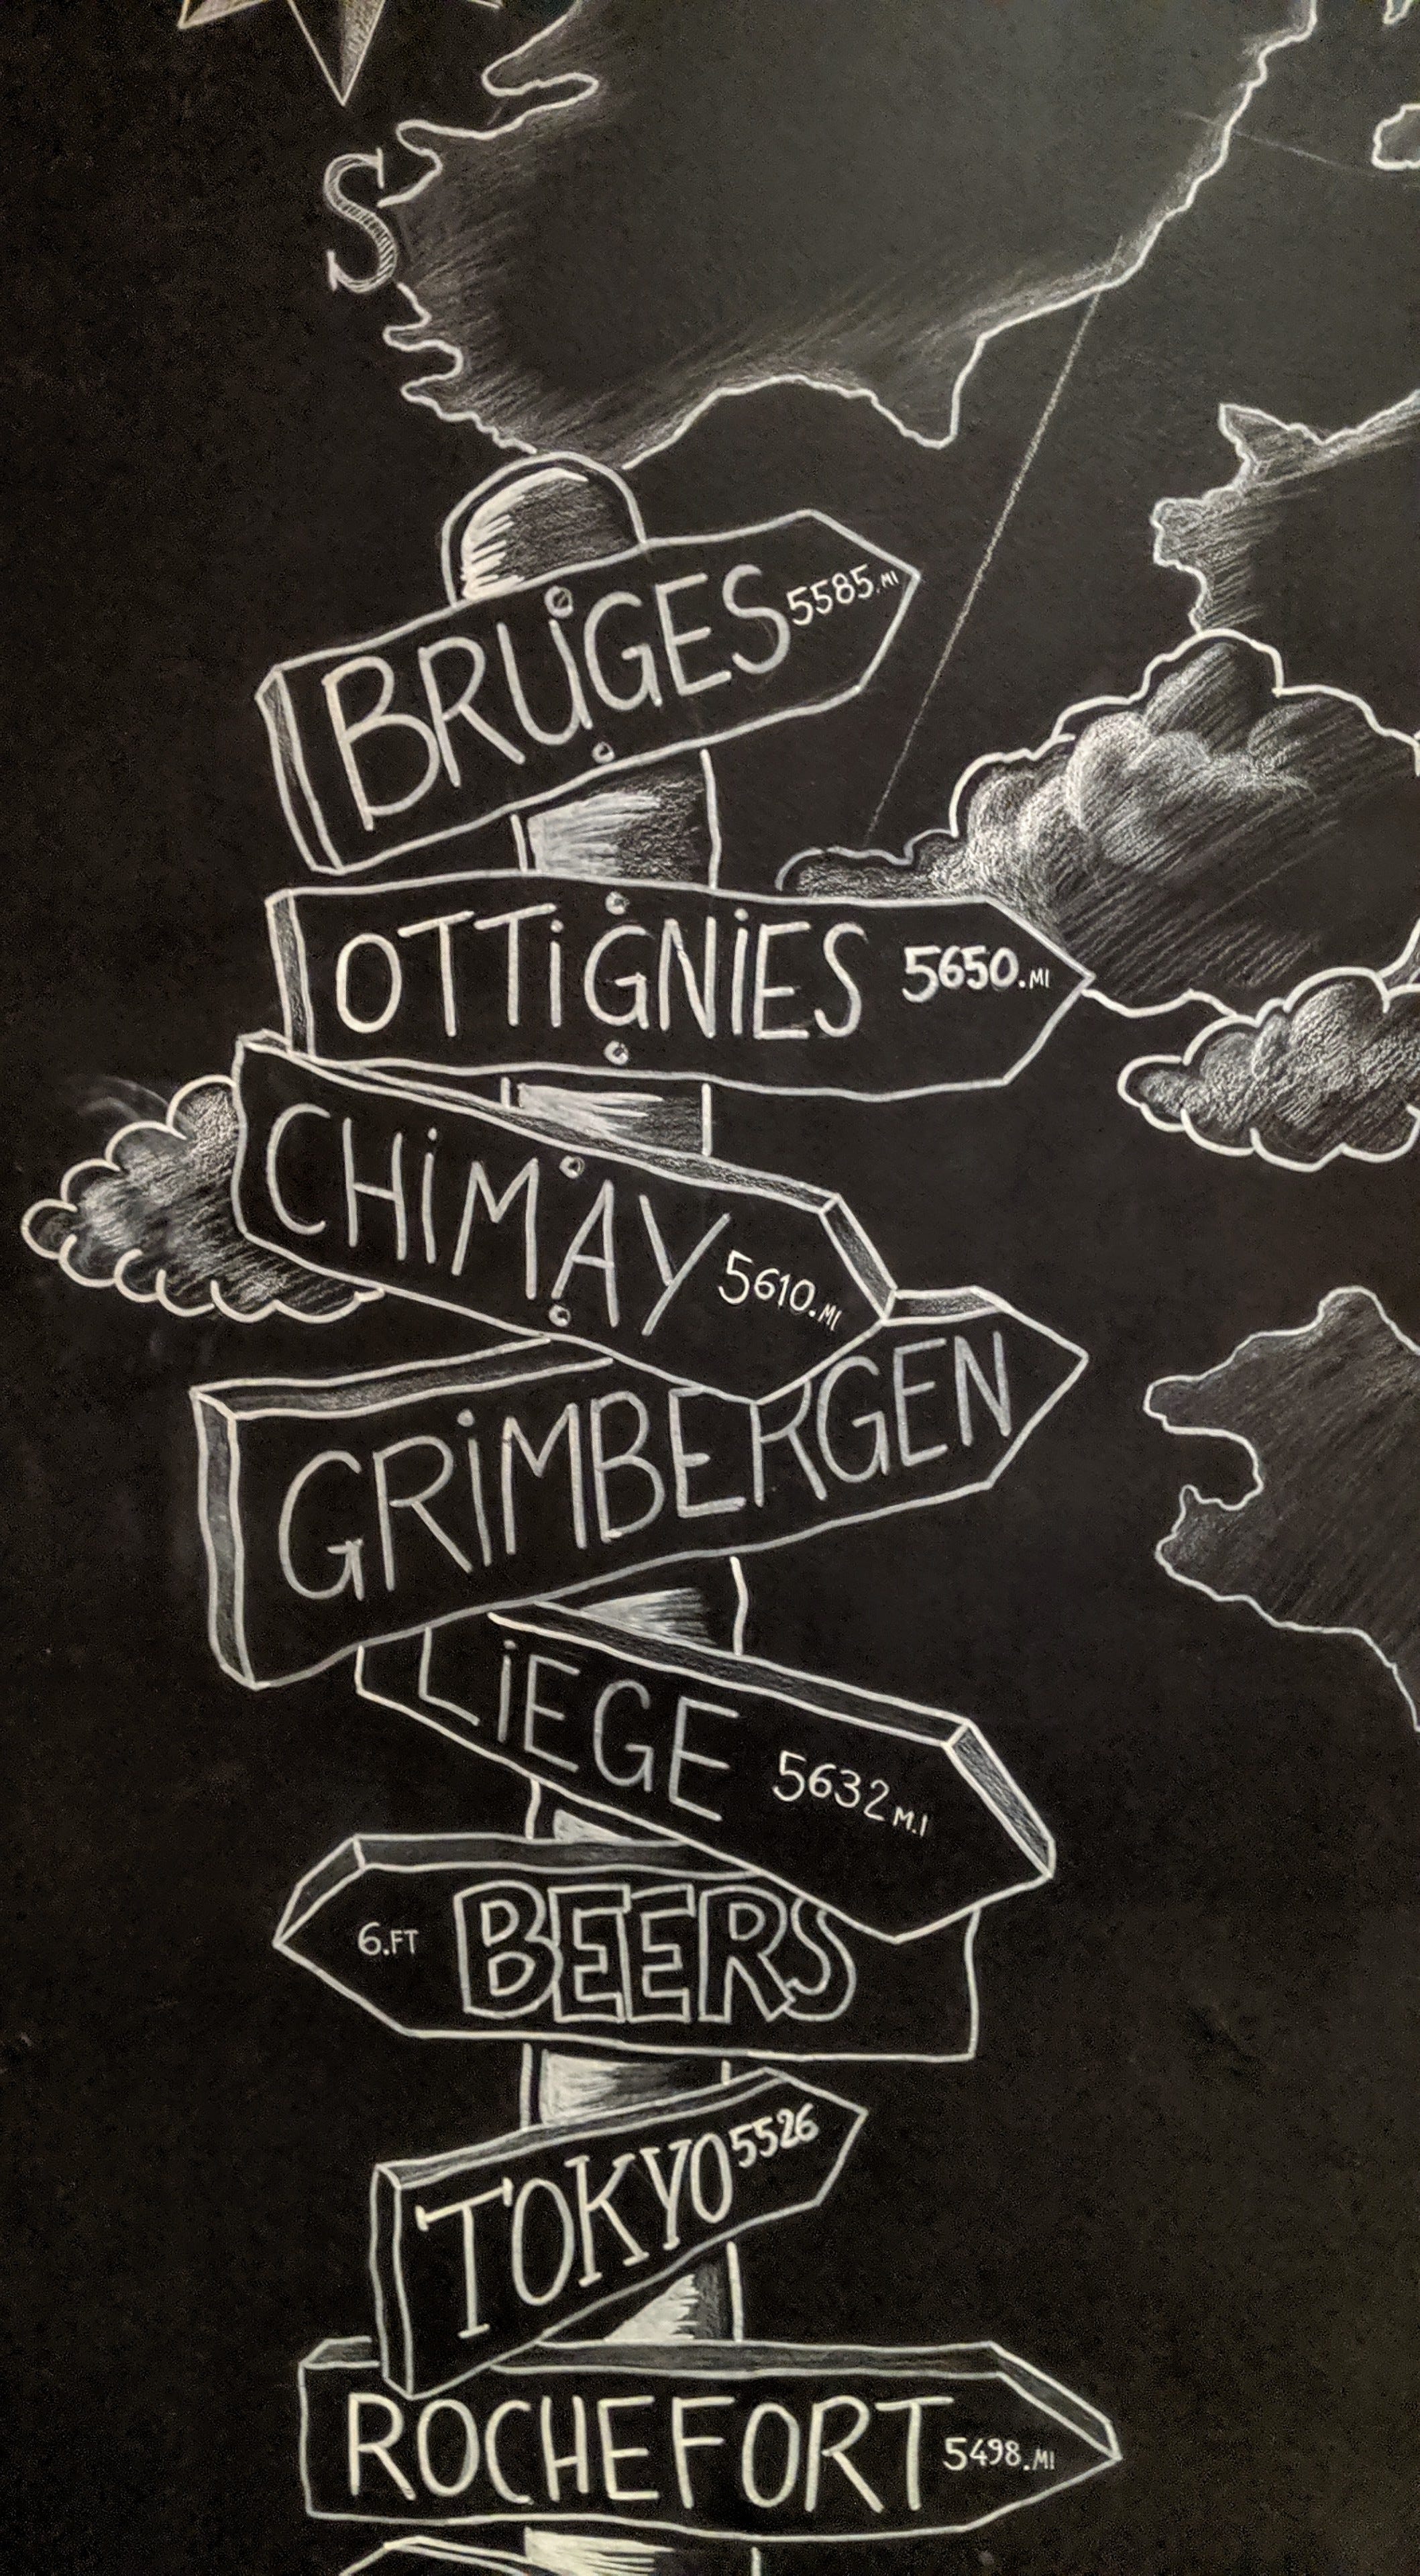 S
BRUGES 5585.MI
OTTiGNiES 5650.MI
CHiMAY 5610.MI
GRiMBERGEN
LiEGE 5632 M.I
6.FT BEERS
TOKYO 5526
ROCHEFORT 5498.MI